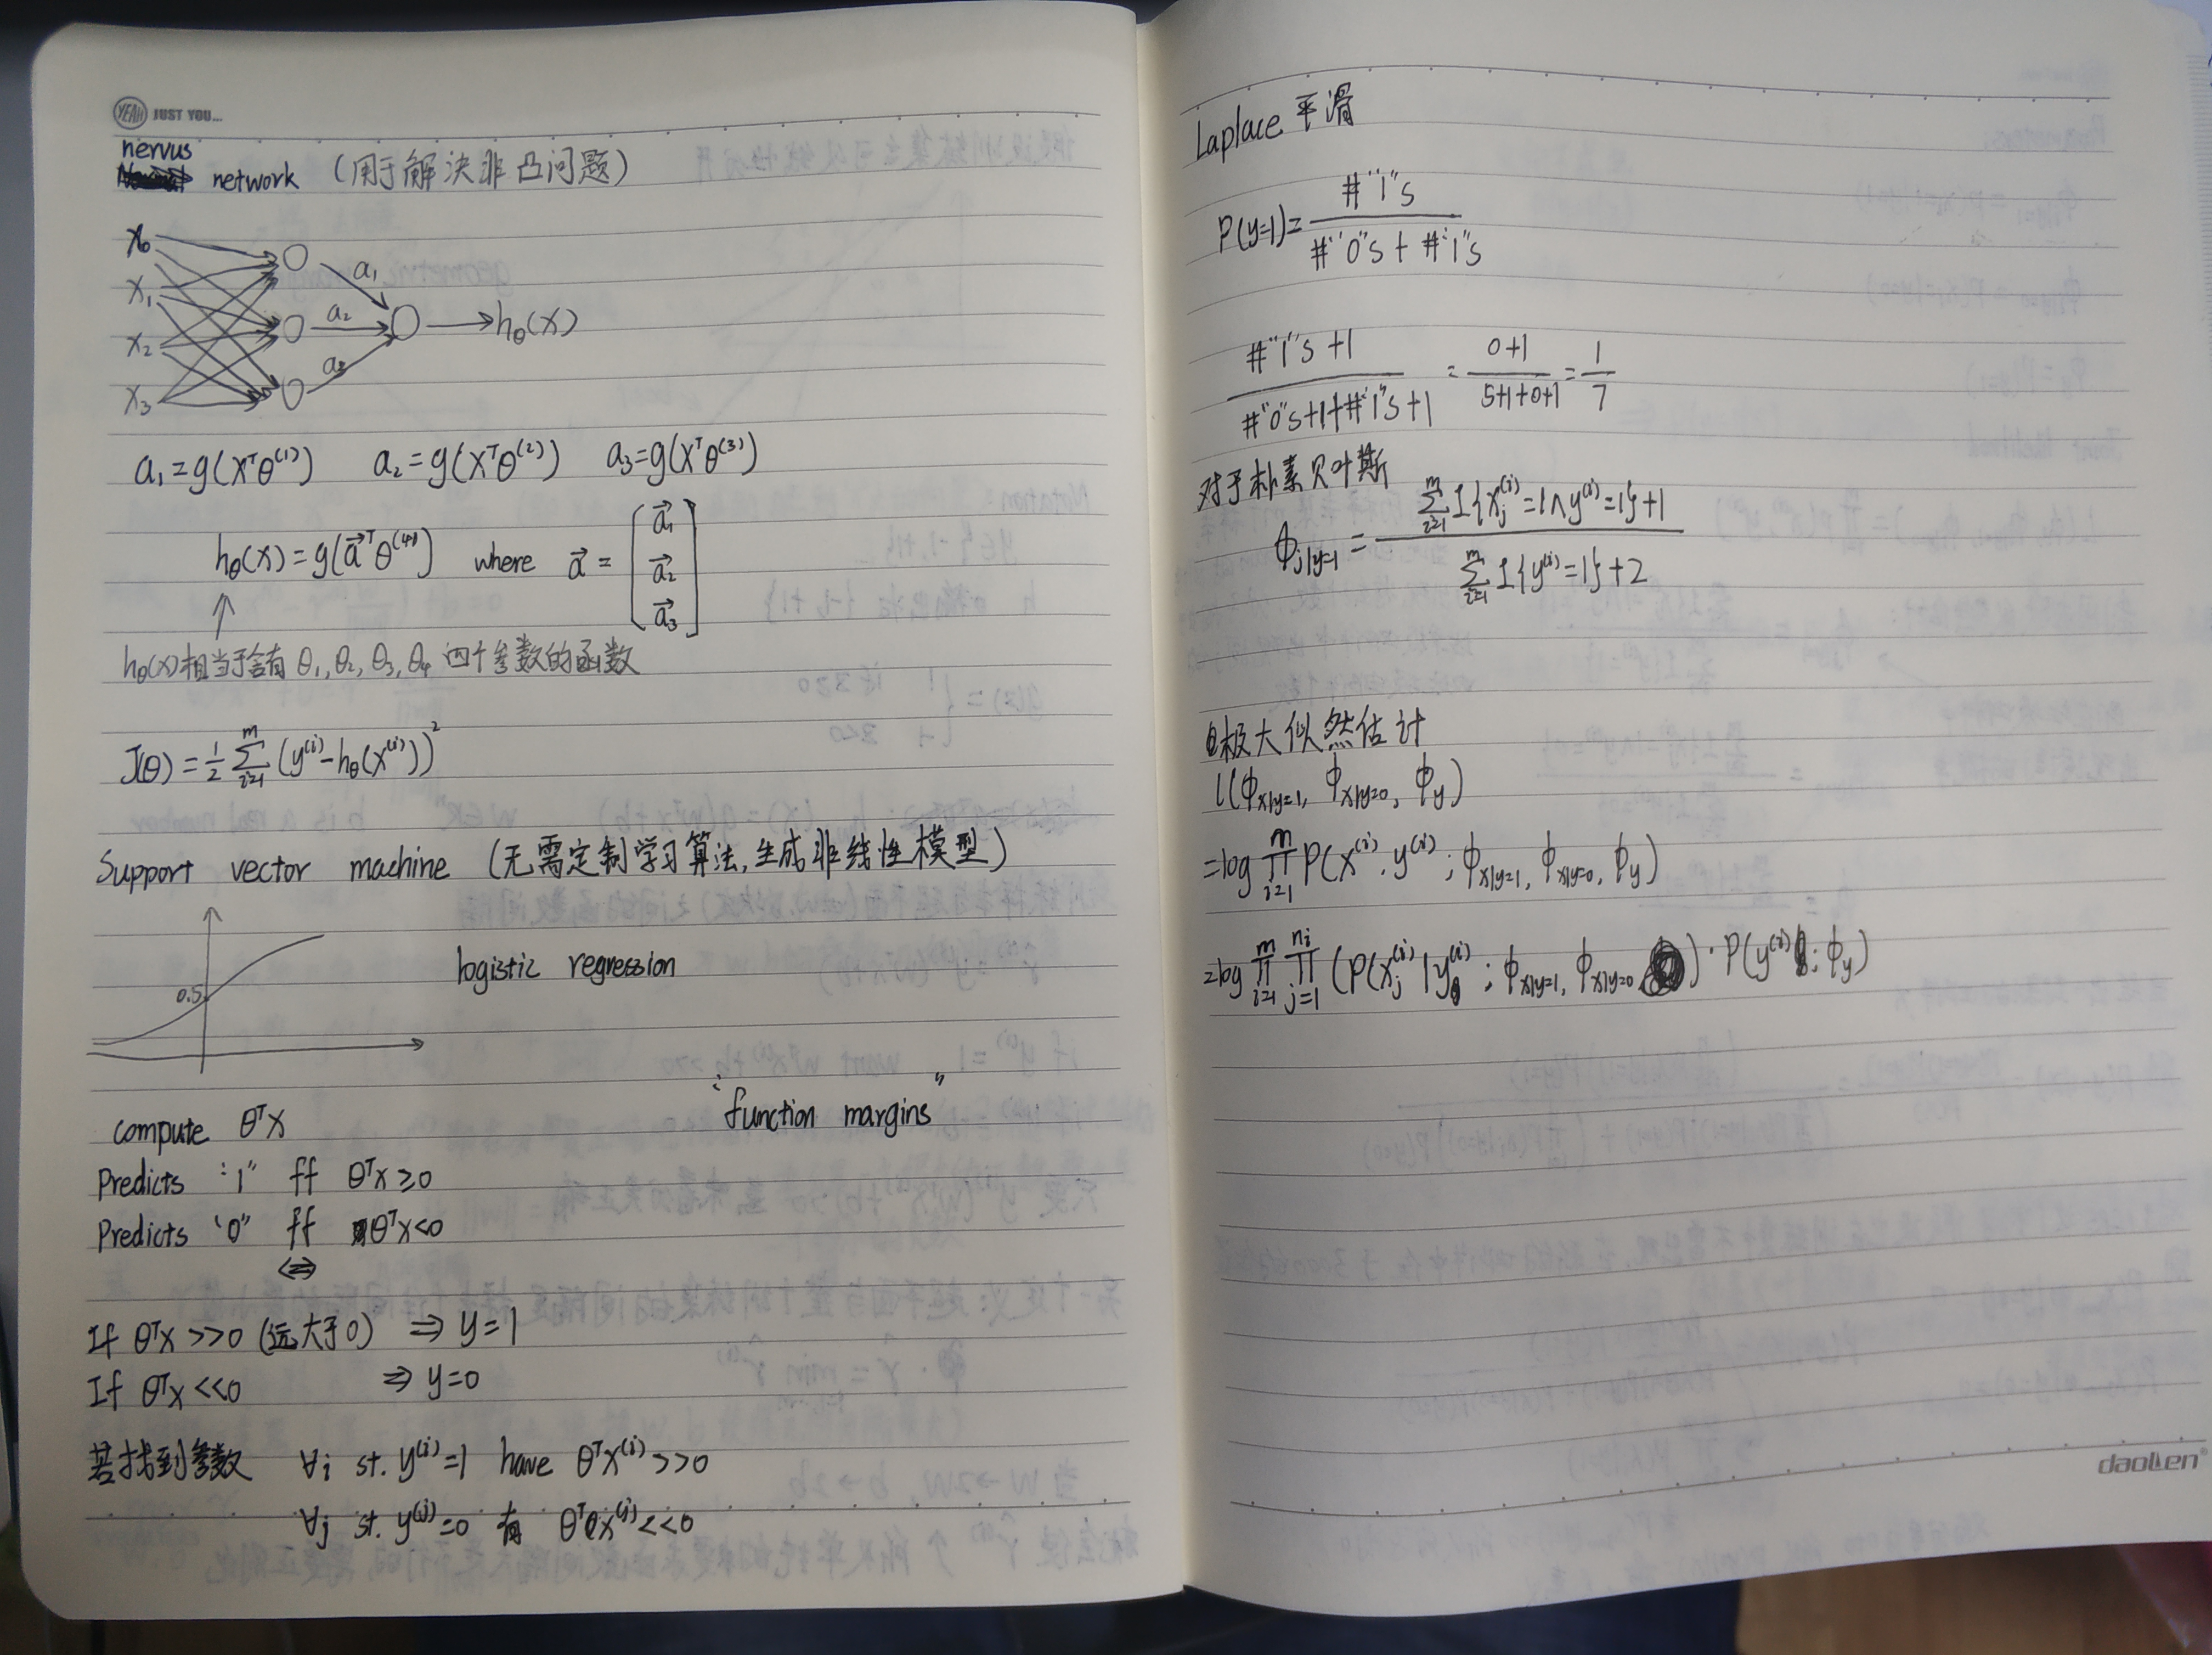 YEAH JUST YOU...
nervus
network (用于解决非凸问题)
x₀
x₁
x₂
x₃
a₁
a₂
a₃
hθ(x)
a₁=g(xᵀθ⁽¹⁾) a₂=g(xᵀθ⁽²⁾) a₃=g(xᵀθ⁽³⁾)
hθ(x)=g(a⃗ᵀθ⁽⁴⁾) where a⃗ = [a⃗₁ a⃗₂ a⃗₃]
↑
hθ(x)相当于含有 θ₁,θ₂,θ₃,θ₄ 四个参数的函数
J(θ)=1/2 ∑_{i=1}^{m} (y⁽ⁱ⁾-hθ(x⁽ⁱ⁾))²
Support vector machine (无需定制学习算法,生成非线性模型)
0.5
logistic regression
"function margins"
compute θᵀx
Predicts "1" ff θᵀx≥0
Predicts "0" ff θᵀx<0
⇔
If θᵀx >>0 (远大于0) ⇒ y=1
If θᵀx <<0 ⇒ y=0
若找到参数 ∀i st. y⁽ⁱ⁾=1 have θᵀx⁽ⁱ⁾>>0
∀j st. y⁽ʲ⁾=0 有 θᵀx⁽ʲ⁾<<0
Laplace 平滑
P(y=1)= #"1"s / (#"0"s + #"1"s)
(#"1"s +1) / (#"0"s+1+#"1"s+1) = (0+1)/(5+1+0+1) = 1/7
对于朴素贝叶斯
ϕ_{j|y=1} = (∑_{i=1}^{m} 1{x_j⁽ⁱ⁾=1∧y⁽ⁱ⁾=1}+1) / (∑_{i=1}^{m} 1{y⁽ⁱ⁾=1}+2)
极大似然估计
l(ϕ_{x|y=1}, ϕ_{x|y=0}, ϕ_y)
=log ∏_{i=1}^{m} P(x⁽ⁱ⁾, y⁽ⁱ⁾; ϕ_{x|y=1}, ϕ_{x|y=0}, ϕ_y)
=log ∏_{i=1}^{m} ∏_{j=1}^{n_i} (P(x_j⁽ⁱ⁾|y⁽ⁱ⁾; ϕ_{x|y=1}, ϕ_{x|y=0})·P(y⁽ⁱ⁾; ϕ_y)
daollen